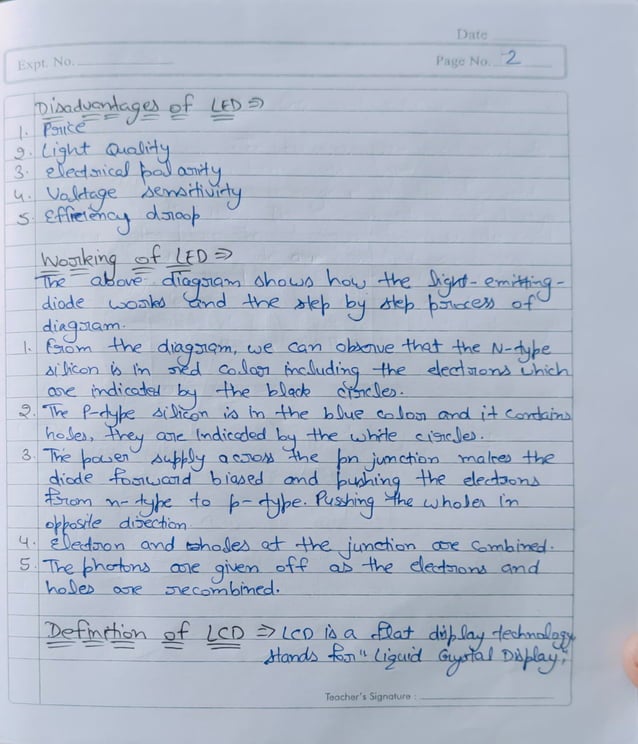 Date
Expt. No.
Page No. 2
Disadvantages of LED ⇒
1. Price
2. Light Quality
3. electrical polarity
4. Valtage sensitivirty
5. Effieiency droop
Working of LED ⇒
The above diagram shows how the light-emitting-
diode works and the step by step process of
diagram.
1. From the diagram, we can observe that the N-type
silicon is in red color including the electrons which
are indicated by the black circles.
2. The P-type silicon is in the blue color and it contains
holes, they are Indicated by the white circles.
3. The power supply across the pn junction makes the
diode forward biased and pushing the electrons
from n-type to p-type. Pusshing the wholes in
opposite direction
4. Electron and holes at the junction are combined.
5. The photons are given off as the electrons and
holes are recombined.
Definition of LCD ⇒ LCD is a flat display technology
stands for "Liquid Crystal Display"
Teacher's Signature :